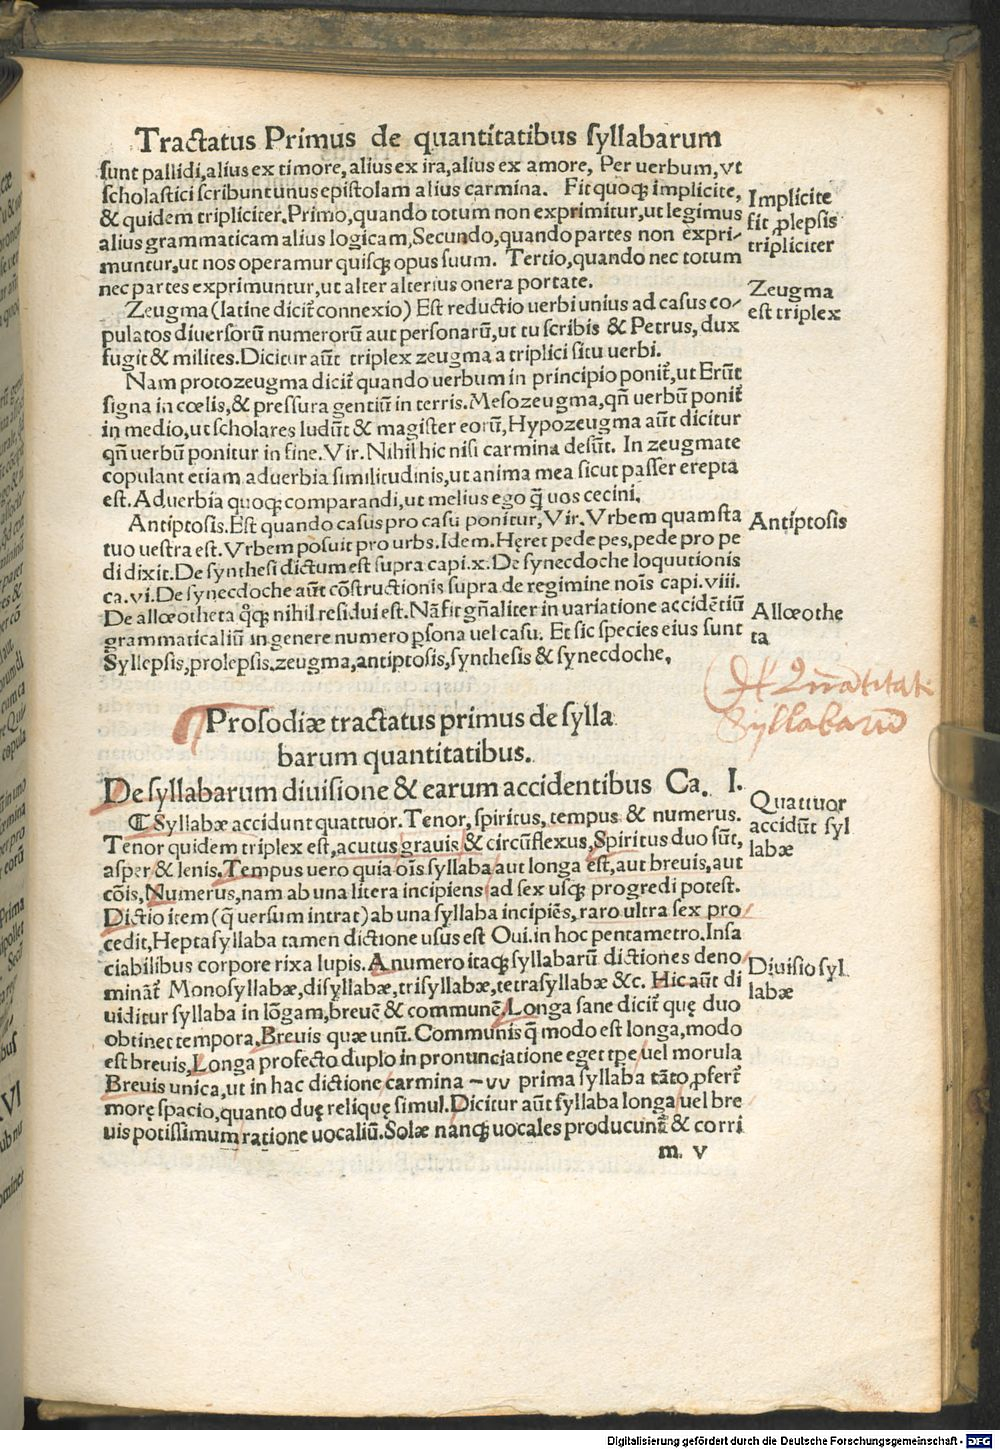 Tractatus Primus de quantitatibus syllabarum
sunt pallidi,alius ex timore,alius ex ira,alius ex amore, Per uerbum,vt
scholastici scribunt unus epistolam alius carmina. Fit quoqꝫ implicite,
& quidem tripliciter.Primo,quando totum non exprimitur,ut legimus
alius grammaticam alius logicam,Secundo,quando partes non expri-
muntur,ut nos operamur quisqꝫ opus suum. Tertio,quando nec totum
nec partes exprimuntur,ut alter alterius onera portate.
Implicite
fit ꝓlepsis
tripliciter
Zeugma (latine dicit̃ connexio) Est reductio uerbi unius ad casus co-
pulatos diuersorũ numerorũ aut personarũ,ut tu scribis & Petrus, dux
fugit & milites.Dicitur aũt triplex zeugma a triplici situ uerbi.
Zeugma
est triplex
Nam protozeugma dicit̃ quando uerbum in principio ponit̃,ut Erũt
signa in cœlis,& pressura gentiũ in terris.Mesozeugma,qñ uerbũ ponit̃
in medio,ut scholares ludũt & magister eorũ,Hypozeugma aũt dicitur
qñ uerbũ ponitur in fine.Vir.Nihil hic nisi carmina desũt. In zeugmate
copulant etiam aduerbia similitudinis,ut anima mea sicut passer erepta
est.Aduerbia quoqꝫ comparandi,ut melius ego q̃ uos cecini.
Antiptosis.Est quando casus pro casu ponitur,Vir.Vrbem quam sta
tuo uestra est.Vrbem posuit pro urbs.Idem.Hęret pede pes,pede pro pe
di dixit.De synthesi dictum est supra capi.x.De synecdoche loquutionis
ca.vi.De synecdoche aũt cõstructionis supra de regimine nois capi.viii.
De allœotheta q̊qꝫ nihil residui est.Nã fit gñaliter in uariatione accidẽtiũ
grammaticaliũ in genere numero ꝑsona uel casu. Et sic species eius sunt
Syllepsis,prolepsis.zeugma,antiptosis,synthesis & synecdoche,
Antiptosis
Allœothe
ta
Syllabarũ
Prosodiæ tractatus primus de sylla
barum quantitatibus.
De syllabarum diuisione & earum accidentibus Ca. I.
⁋ Syllabæ accidunt quattuor.Tenor,spiritus,tempus & numerus.
Tenor quidem triplex est,acutus grauis & circũflexus,Spiritus duo sũt,
asper & lenis.Tempus uero quia oĩs syllaba aut longa est,aut breuis,aut
cõis,Numerus,nam ab una litera incipiens ad sex usqꝫ progredi potest.
Dictio item (q̃ uersum intrat) ab una syllaba incipiẽs,raro ultra sex pro
cedit,Heptasyllaba tamen dictione usus est Oui.in hoc pentametro.Insa
ciabilibus corpore rixa lupis.A numero itaqꝫ syllabarũ dictiones deno
minãt̃ Monosyllabæ,disyllabæ,trisyllabæ,tetrasyllabæ &c. Hic aũt di
uiditur syllaba in lõgam,breuẽ & communẽ.Longa sane dicit̃ quę duo
obtinet tempora,Breuis quæ unũ.Communis q̃ modo est longa,modo
est breuis,Longa profecto duplo in pronunciatione eget tpe uel morula
Breuis unica,ut in hac dictione carmina –vv prima syllaba tãto ꝓfert̃
morę spacio,quanto duę reliquę simul.Dicitur aũt syllaba longa uel bre
uis potissimum ratione uocaliũ.Solæ nanqꝫ uocales producunt̃ & corri
Quattuor
accidũt syl
labæ
Diuisio syl
labæ
m v
Digitalisierung gefördert durch die Deutsche Forschungsgemeinschaft - DFG